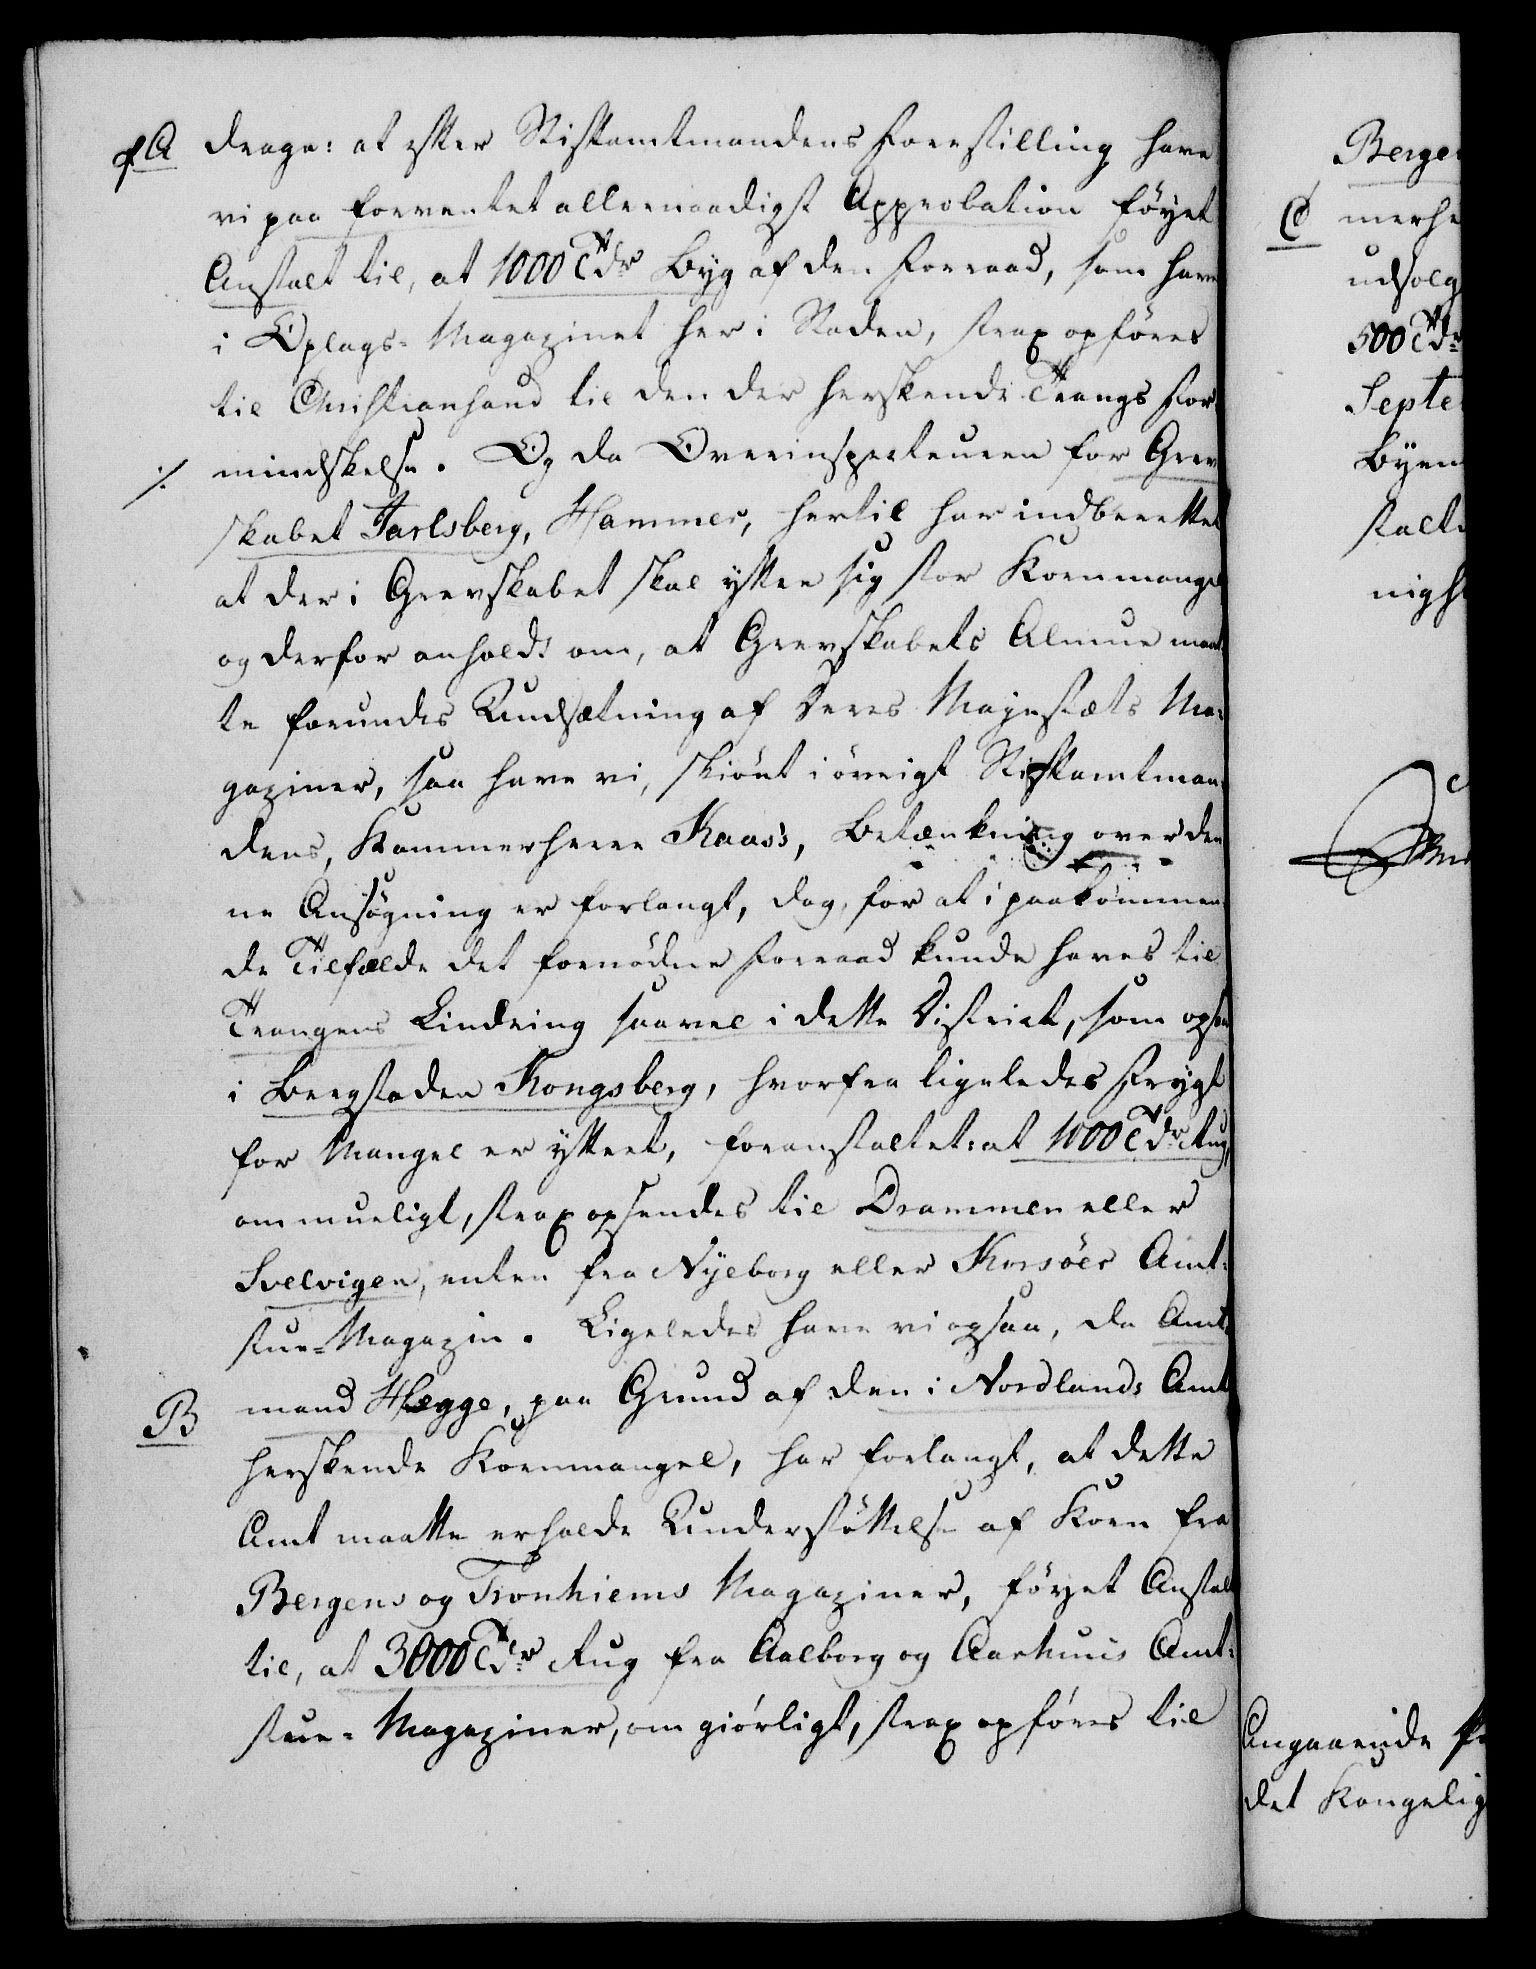 A drage: at efter Stiftamtmandens Forestilling have
vi paa forventet allernaadigst Approbation føyet
Anstalt til, at 1000 Tdr Byg af den Forraad, som haves
i Oplags-Magazinet her i Staden, strax opføres
til Christiansand til den der herskende Trangs For-
mindskelse. Og da Overinspecteuren for Grev
skabet Jarlsberg, Hammer, hertil har indberettet
at der i Grevskabet skal yttre sig stor Kornmangel
og derfor anholdt om, at Grevskabets Almue maat
te forundes Undsætning af Deres Majestæts Ma-
gaziner, saa have vi, skiønt i øvrigt Stiftamtman
dens, Kammerherre Kaas's, Betænkning over den
ne Ansøgning er forlangt, dog, for at i paakommen
de Tilfælde det fornødne Forraad kunde haves til
Trangens Lindring saavel i dette District, som ogsaa
i Bergstaden Kongsberg, hvorfra ligeledes Frygt
for Mangel er yttret, foranstaltet: at 1000 Tdr Rug,
om mueligt, strax opsendes til Drammen eller
Svelvigen, enten fra Nyeborg eller Korsöer Amt-
stue-Magazin. Ligeledes have vi ogsaa, da Amt-
B mand Hegge, paa Grund af den i Nordlands Amt
herskende Kornmangel, har forlangt, at dette
Amt maatte erholde Understøttelse af Korn fra
Bergens og Tronhiems Magaziner, føyet Anstalt
til, at 3000 Tdr Rug fra Aalborg og Aarhuus Amt-
stue-Magaziner, om giørligt, strax opføres til
Bergen
C merhe
udsolg
500 Tdr
Septe
Byen
stalt
nigst
Angaaende
det Kongelig